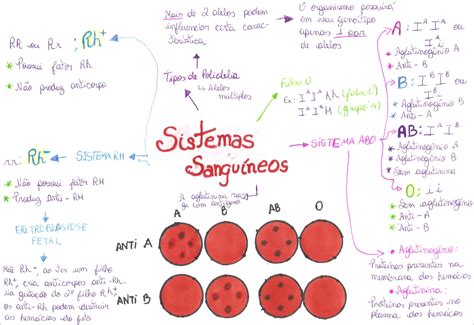 RR ou Rr : Rh+
* Possui fator RH
* Não produz anticorpo
Mais de 2 alelos podem
influenciar certa carac-
terística
O organismo possuirá
em seu genótipo
apenas 1 par
de alelos
Tipos de Polialelia
↳ Alelos
múltiplos
Falso O
Ex: I^A I^A hh (falso O)
I^A I^A H (grupo A)
Sistemas
Sanguíneos
SISTEMA ABO
A : I^A I^A ou
I^A i
* Aglutinogênio A
* Anti - B
B : I^B I^B ou
I^B i
* Aglutinogênio B
* Anti - A
AB: I^A I^B
* Aglutinogênio A
e B
* Sem aglutinina
O : i i
* Sem aglutinogênio
* Anti - A
* Anti - B
rr: Rh-
SISTEMA RH
* Não possui fator RH
* Produz anti-RH
ERITROBLASTOSE
FETAL
Mãe Rh-, ao ter um filho
Rh+, cria anticorpos anti-Rh.
Na gestação do 2º filho Rh+
os anti-Rh podem destruir
as hemácias do feto
A aglutinina rea-
ge com antígeno
A B AB O
ANTI A
ANTI B
* Aglutinogênio:
Proteínas presentes na
membrana das hemácias
* Aglutinina:
Proteínas presentes no
plasma das hemácias